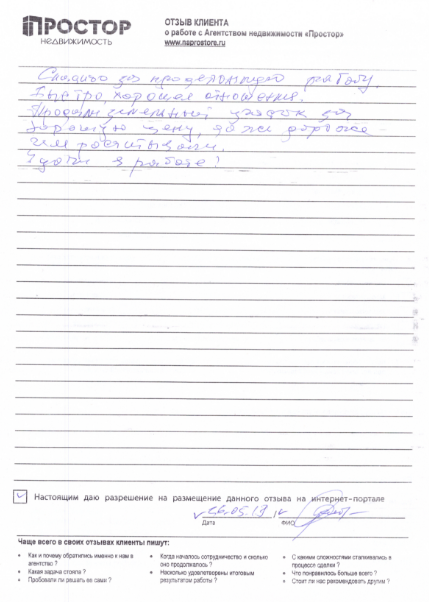 ПРОСТОР
НЕДВИЖИМОСТЬ
ОТЗЫВ КЛИЕНТА
о работе с Агентством недвижимости «Простор»
www.naprostore.ru
Спасибо за проделанную работу.
Быстро, хорошие отношения.
Продали земельный участок за
хорошую цену, даже дороже
чем рассчитывали.
Удачи в работе!
Настоящим даю разрешение на размещение данного отзыва на интернет-портале
26.05.19
Дата
ФИО
Чаще всего в своих отзывах клиенты пишут:
• Как и почему обратились именно к нам в агентство ?
• Какая задача стояла ?
• Пробовали ли решать ее сами ?
• Когда началось сотрудничество и сколько оно продолжалось ?
• Насколько удовлетворены итоговым результатом работы ?
• С какими сложностями сталкивались в процессе сделки ?
• Что понравилось больше всего ?
• Стоит ли нас рекомендовать другим ?